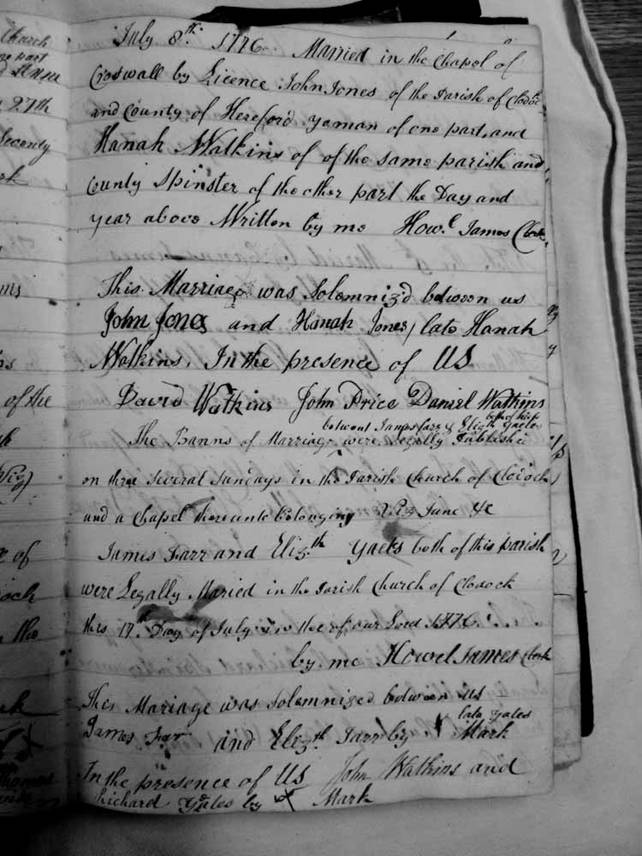 July 8th. 1776. Married in the Chapel of
Croswall by Licence John Jones of the Parish of Clodoc
and County of Hereford yaman of one part, and
Hanah Watkins of of the same parish and
County Spinster of the other part the Day and
year above Written by me Howl. James Clerk
This Marriage was Solemniz'd between us
John Jones and Hanah Jones, late Hanah
Watkins, In the presence of US
David Watkins John Price Daniel Watkins
between James Farr & Elizth Yates both of this
The Banns of Marriage were Legally Publishd
on three Several Sundays in the Parish Church of Clodoch
and a Chapel thereunto belonging June
James Farr and Elizth Yates both of this parish
were Legally Maried in the Parish Church of Clodock
this 17th Day of July in the of our Lord 1776.
by me Howel James Clerk
This Mariage was Solemnized between us
late Yates
James Farr and Elizth Farr by X Mark
In the presence of US John Watkins and
Richard Yates by X Mark